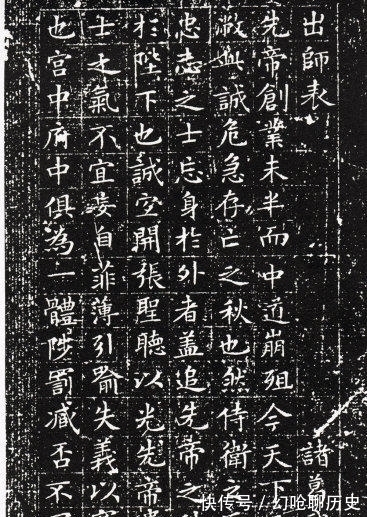 出師表 諸葛
先帝創業未半而中道崩殂今天下
敝此誠危急存亡之秋也然侍衛之
忠志之士忘身於外者蓋追先帝之
於陛下也誠宜開張聖聽以光先帝
士之氣不宜妄自菲薄引喻失義以
也宮中府中俱為一體陟罰臧否不
快传号//幻呛聊历史